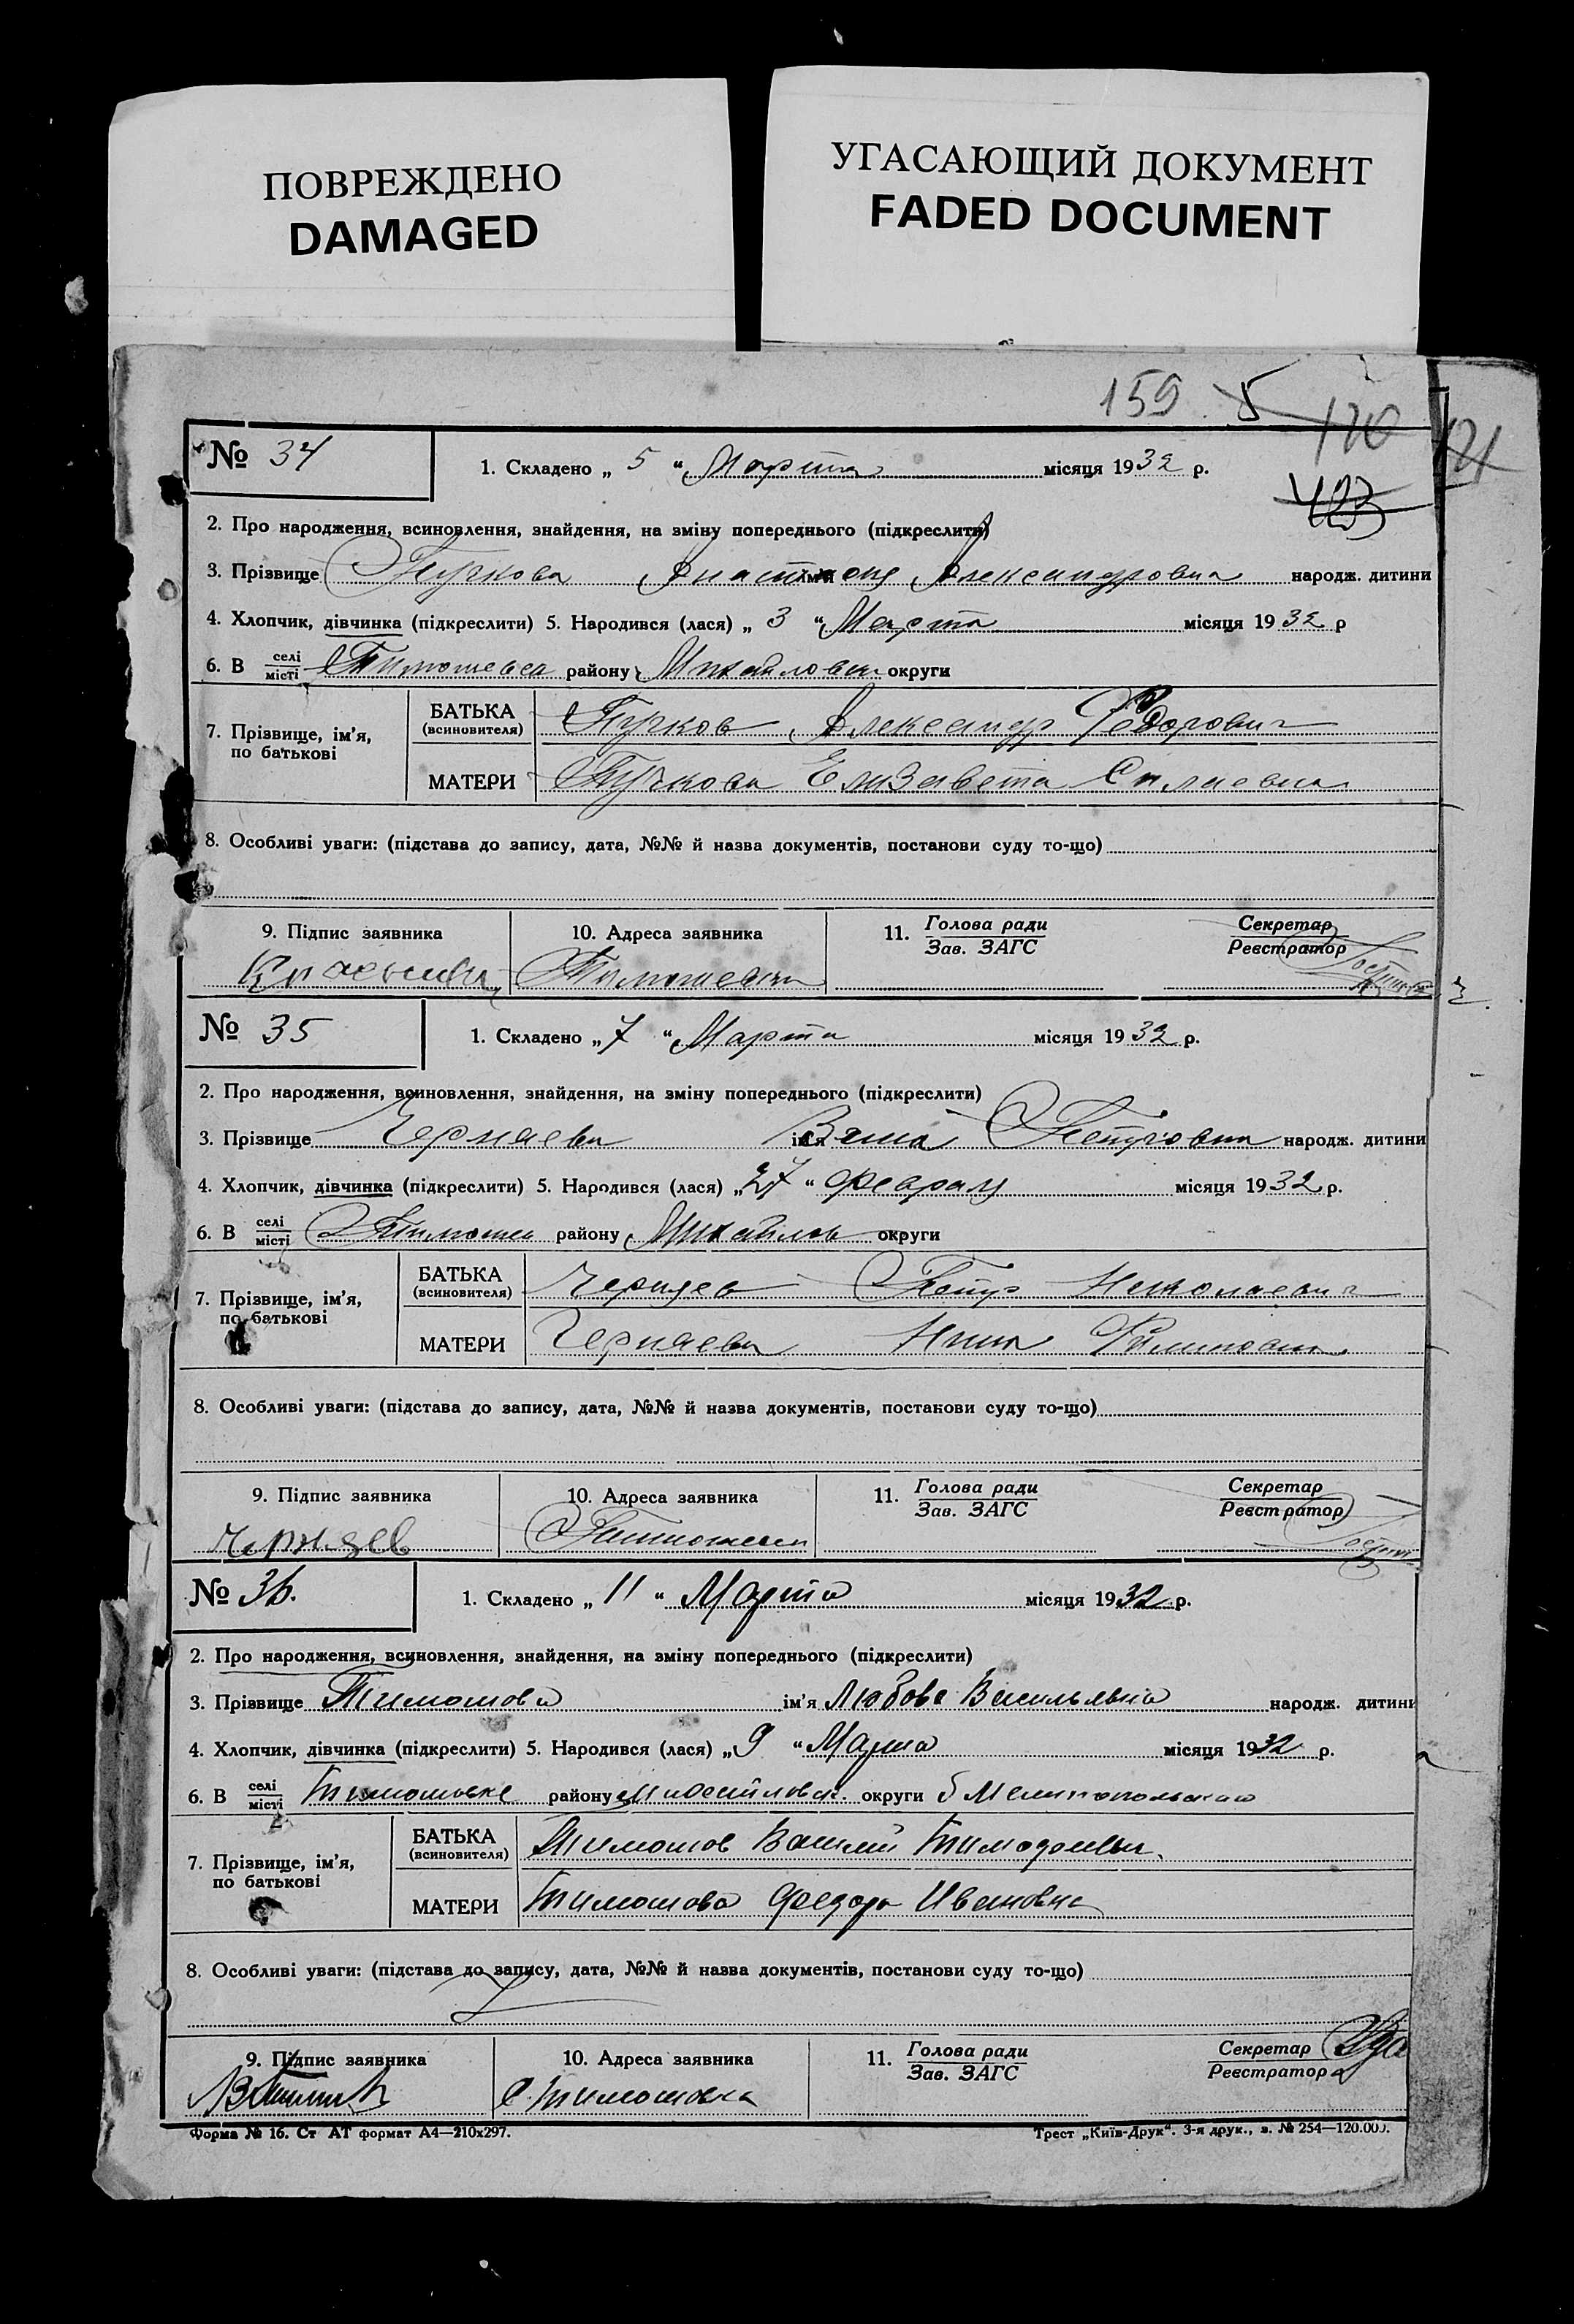 ПОВРЕЖДЕНО
DAMAGED
УГАСАЮЩИЙ ДОКУМЕНТ
FADED DOCUMENT
159 5 120 121
423
№ 34
1. Складено „ 5 “ Марта місяця 1932 р.
2. Про народження, всиновлення, знайдення, на зміну попереднього (підкреслити)
3. Прізвище ім'я Александровна народж. дитини
4. Хлопчик, дівчинка (підкреслити) 5. Народився (лася) „ 3 “ Марта місяця 1932 р
6. В селі місті Тимошевка району Михайловск округи
7. Прізвище, ім’я, по батькові
БАТЬКА (всиновителя) Александр Федорович
МАТЕРИ Елизавета
8. Особливі уваги: (підстава до запису, дата, №№ й назва документів, постанови суду то-що)
9. Підпис заявника 10. Адреса заявника 11. Голова ради Зав. ЗАГС Секретар Реєстратор
Тимошевка
№ 35
1. Складено „ 7 “ Марта місяця 1932 р.
2. Про народження, всиновлення, знайдення, на зміну попереднього (підкреслити)
3. Прізвище Черняева ім'я Петровна народж. дитини
4. Хлопчик, дівчинка (підкреслити) 5. Народився (лася) „ 27 “ февраля місяця 1932 р.
6. В селі місті Тимошев району Михайлов округи
7. Прізвище, ім’я, по батькові
БАТЬКА (всиновителя) Черняев Петр Николаевич
МАТЕРИ Черняева Нина Филиповна
8. Особливі уваги: (підстава до запису, дата, №№ й назва документів, постанови суду то-що)
9. Підпис заявника 10. Адреса заявника 11. Голова ради Зав. ЗАГС Секретар Реєстратор
Черняев
№ 36.
1. Складено „ 11 “ Марта місяця 1932 р.
2. Про народження, всиновлення, знайдення, на зміну попереднього (підкреслити)
3. Прізвище Тимошова ім'я Любовь Васильевна народж. дитини
4. Хлопчик, дівчинка (підкреслити) 5. Народився (лася) „ 9 “ Марта місяця 1932 р.
6. В селі місті Тимошовке району Михайловск. округи б Мелитопольская
7. Прізвище, ім’я, по батькові
БАТЬКА (всиновителя) Тимошов Василий
МАТЕРИ Тимошова Ивановна
8. Особливі уваги: (підстава до запису, дата, №№ й назва документів, постанови суду то-що)
9. Підпис заявника 10. Адреса заявника 11. Голова ради Зав. ЗАГС Секретар Реєстратор
С. Тимошовка
Форма № 16. Ст АТ формат А4—210х297.
Трест „Київ-Друк“. 3-я друк., з. № 254—120.000.